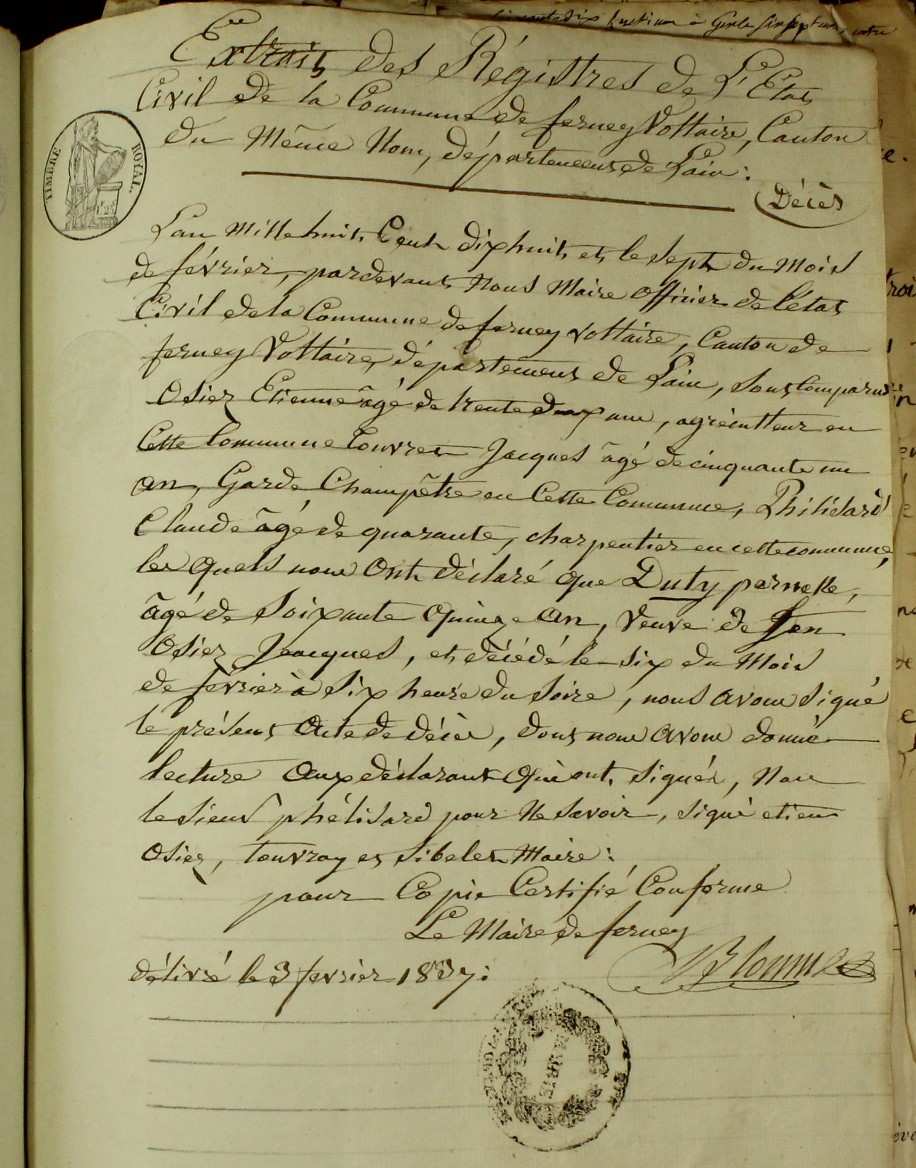 Extrait des Régistres de L'Etat
Civil de la Commune de ferney Voltaire, Canton
du Même Nom, département de L'ain :
TIMBRE ROYAL.
Décès
L'an Mille huit Cent dixhuit et le sept du Mois
de février, pardevant Nous Maire officier de l'état
Civil de la Commune de ferney voltaire, Canton de
ferney Voltaire, département de L'ain, sont comparu
Osier Etienne âgé de trente deux ans, agriculteur en
Cette Commune Jacques âgé de cinquante un
an, Garde Champêtre en Cette Commune,
Claude âgé de quarante, charpentier en cette commune,
les quels nous ont déclaré que Duty pernelle,
âgé de Soixante quinze an, veuve de feu
Osier Jacques, et décédé le six du Mois
de février à six heure du soire, nous avons signé
le présent acte de décès, dont nous avons donné
lecture aux déclarant qui ont signés, Non
le sieur phélisard pour Ne savoir, signé etien
Osier, touvray et sibelet Maire :
pour Copie Certifié Conforme
Le Maire de ferney
délivré le 3 fevrier 1837 :
MAIRIE